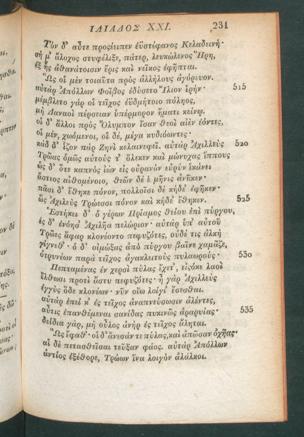 ΙΛΙΑΔΟΣ ΧΧΙ. 231
Τὸν δ' αὖτε προσέειπεν ἐϋστέφανος Κελαδεινή·
σή μ' ἄλοχος στυφέλιξε, πάτερ, λευκώλενος Ἥρη,
ἐξ ἧς ἀθανάτοισιν ἔρις καὶ νεῖκος ἐφῆπται.
Ὣς οἱ μὲν τοιαῦτα πρὸς ἀλλήλους ἀγόρευον.
αὐτὰρ Ἀπόλλων Φοῖβος ἐδύσετο Ἴλιον ἱρήν· 515
μέμβλετο γάρ οἱ τεῖχος ἐϋδμήτοιο πόληος,
μὴ Δαναοὶ πέρσειαν ὑπέρμορον ἤματι κείνῳ.
οἱ δ' ἄλλοι πρὸς Ὄλυμπον ἴσαν θεοὶ αἰὲν ἐόντες,
οἱ μὲν, χωόμενοι, οἱ δὲ, μέγα κυδιόωντες·
κὰδ δ' ἷζον πὰρ Ζηνὶ κελαινεφεῖ. αὐτὰρ Ἀχιλλεὺς 520
Τρῶας ὁμῶς αὐτούς τ' ὄλεκεν καὶ μώνυχας ἵππους
ὡς δ' ὅτε καπνὸς ἰὼν εἰς οὐρανὸν εὐρὺν ἱκάνει
ἄστεος αἰθομένοιο, θεῶν δέ ἑ μῆνις ἀνῆκεν·
πᾶσι δ' ἔθηκε πόνον, πολλοῖσι δὲ κήδε' ἐφῆκεν·
ὣς Ἀχιλεὺς Τρώεσσι πόνον καὶ κήδε' ἔθηκεν. 525
Ἑστήκει δ' ὁ γέρων Πρίαμος θείου ἐπὶ πύργου,
ἐς δ' ἐνόησ' Ἀχιλῆα πελώριον· αὐτὰρ ὑπ' αὐτοῦ
Τρῶες ἄφαρ κλονέοντο πεφυζότες, οὐδέ τις ἀλκὴ
γίγνεθ'· ὁ δ' οἰμώξας ἀπὸ πύργου βαῖνε χαμᾶζε,
ὀτρυνέων παρὰ τεῖχος ἀγακλειτοὺς πυλαωρούς· 530
Πεπταμένας ἐν χερσὶ πύλας ἔχετ', εἰσόκε λαοὶ
ἔλθωσι προτὶ ἄστυ πεφυζότες· ἦ γὰρ Ἀχιλλεὺς
ἐγγὺς ὅδε κλονέων· νῦν οἴω λοίγι' ἔσεσθαι.
αὐτὰρ ἐπεί κ' ἐς τεῖχος ἀναπνεύσωσιν ἀλέντες,
αὖτις ἐπανθέμεναι σανίδας πυκινῶς ἀραρυίας· 535
δείδια γὰρ, μὴ οὖλος ἀνὴρ ἐς τεῖχος ἅληται.
Ὣς ἔφαθ'· οἱ δ' ἄνεσάν τε πύλας, καὶ ἀπῶσαν ὀχῆας·
αἱ δὲ πετασθεῖσαι τεῦξαν φάος. αὐτὰρ Ἀπόλλων
ἀντίος ἐξέθορε, Τρώων ἵνα λοιγὸν ἀλάλκοι.